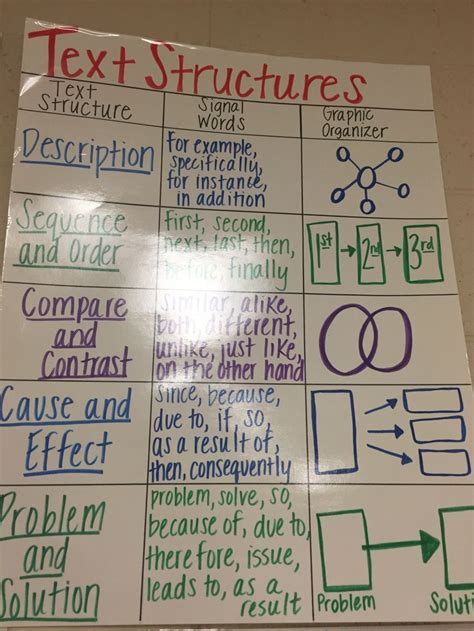 Text Structures
Text
Structure
Signal
Words
Graphic
Organizer
Description
For example,
specifically,
for instance,
in addition
Sequence
and Order
First, second,
next, last, then,
before, finally
1st
2nd
3rd
Compare
and
Contrast
similar, alike,
both, different,
unlike, just like,
on the other hand
Cause and
Effect
since, because,
due to, if, so,
as a result of,
then, consequently
Problem
and
Solution
problem, solve, so,
because of, due to,
therefore, issue,
leads to, as a
result
Problem
Soluti